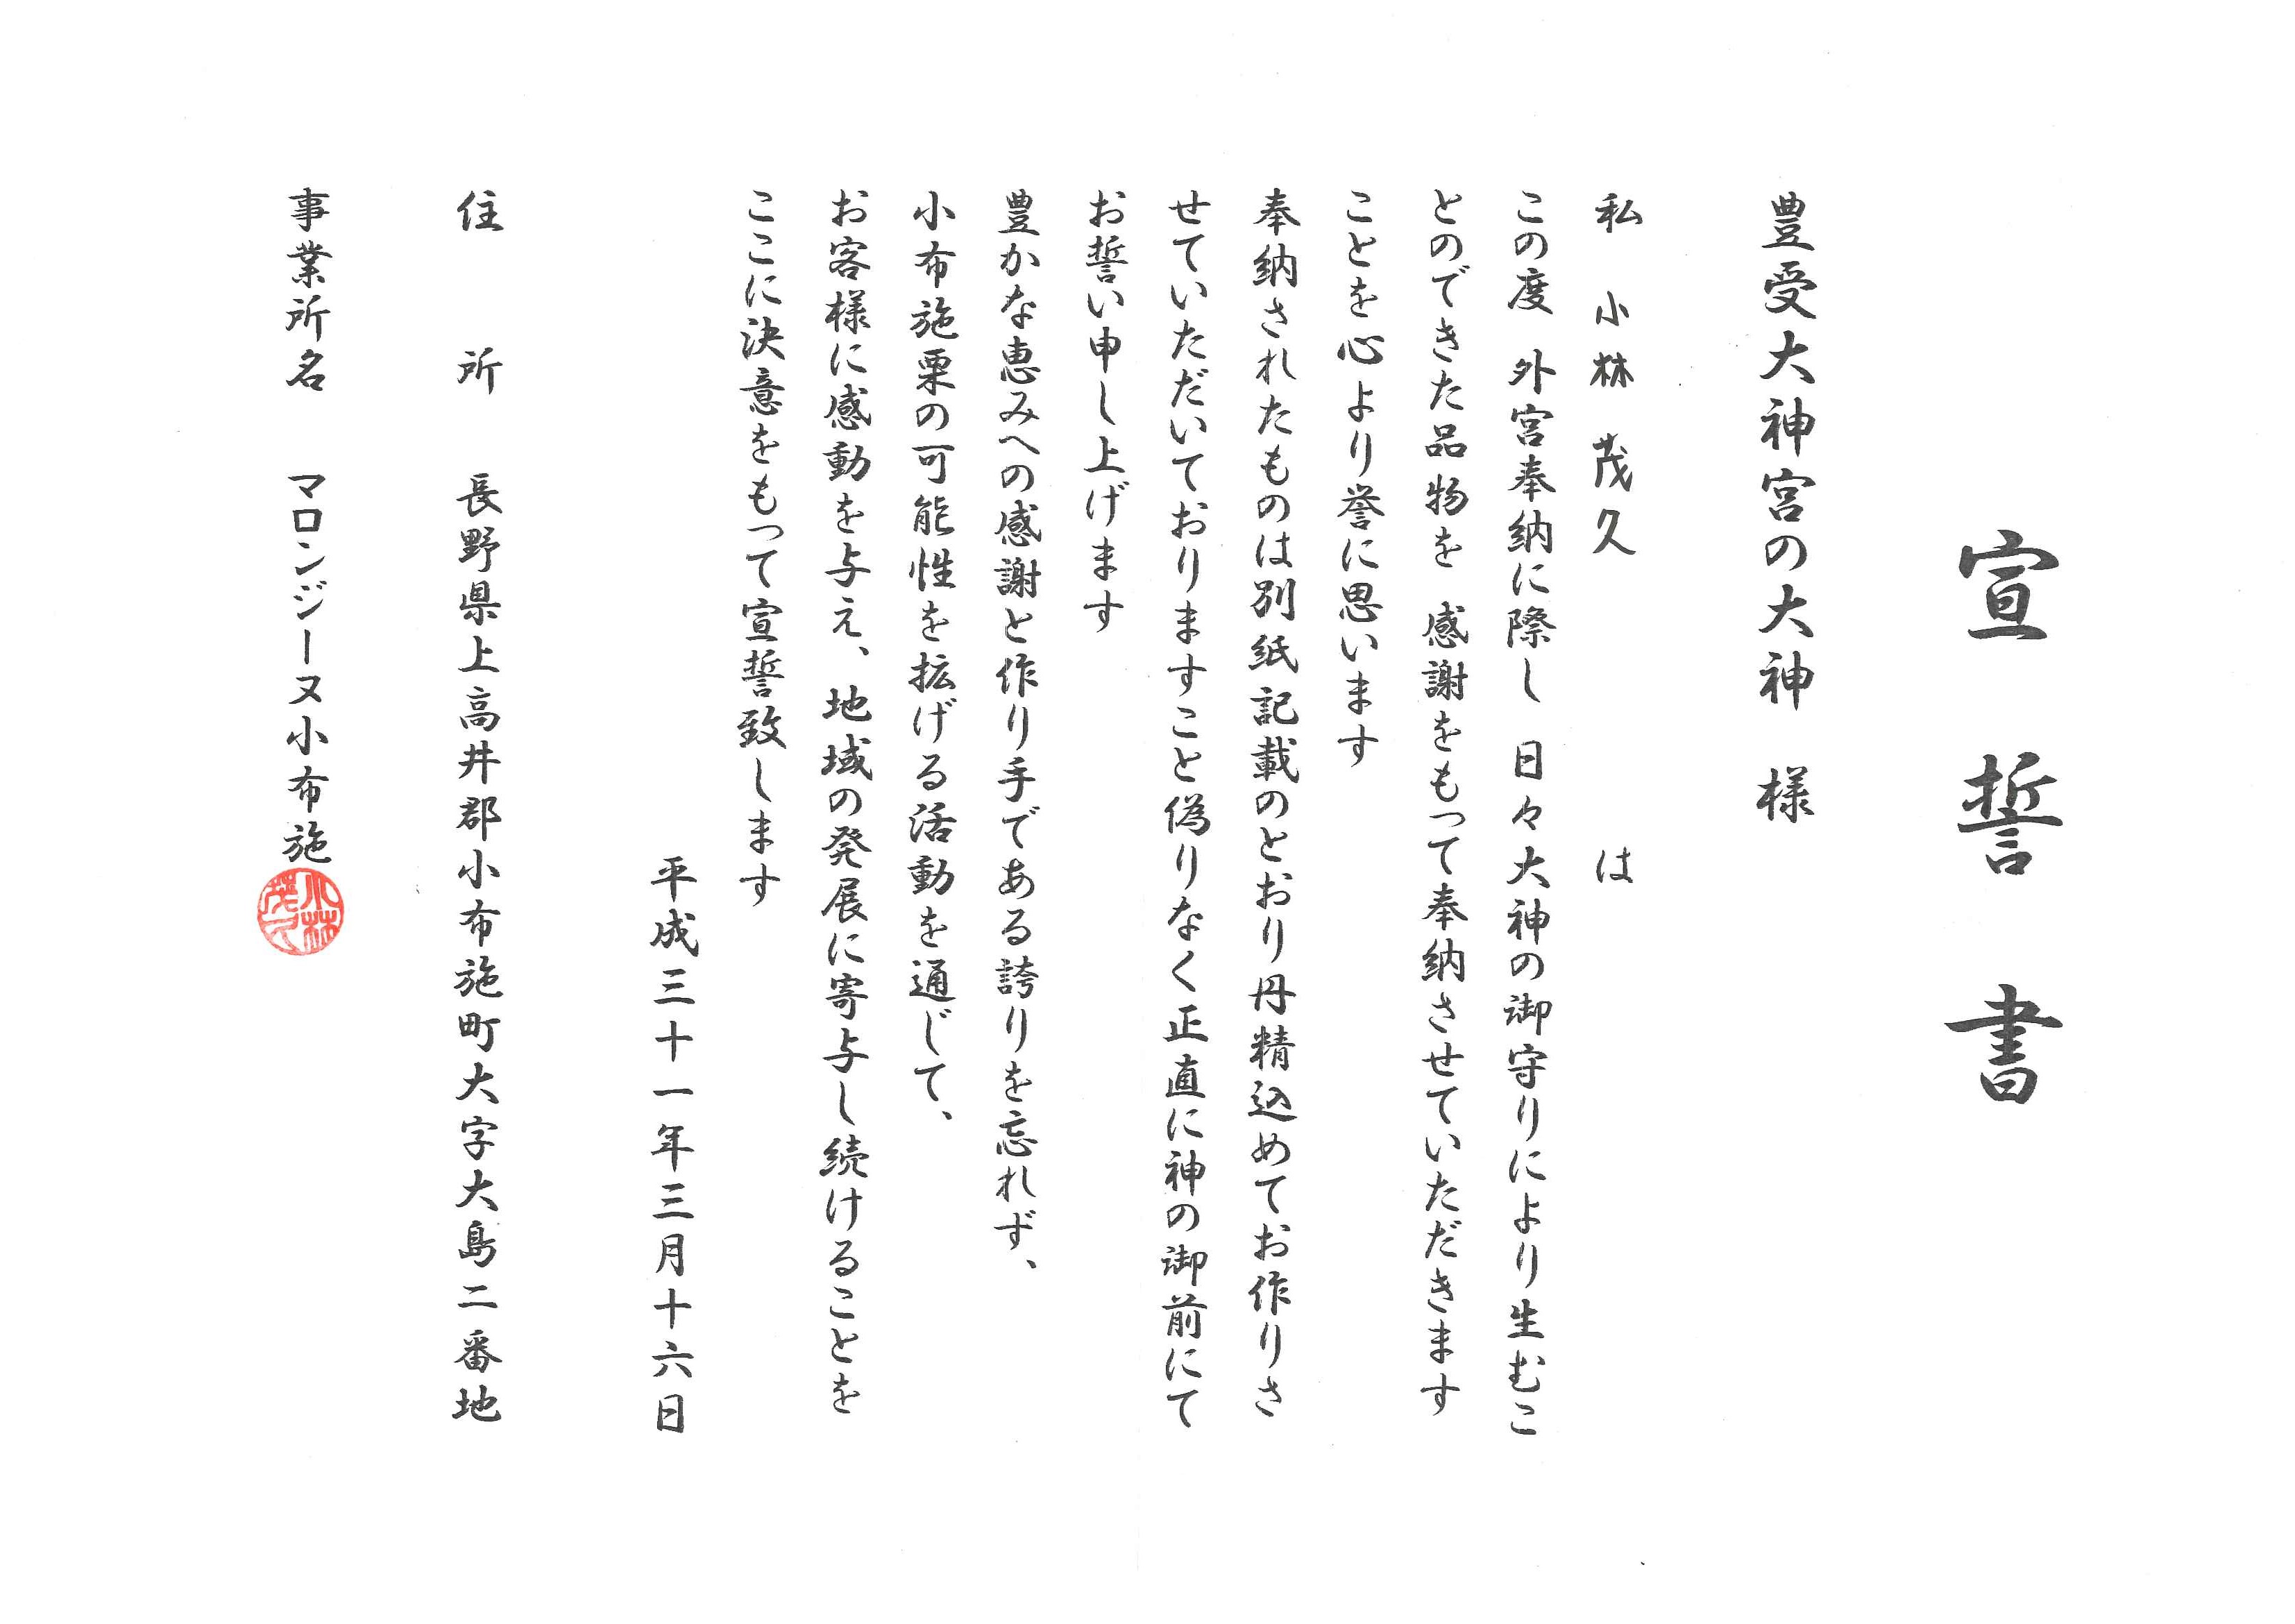 宣誓書
豊受大神宮の大神 様
私 小林 茂久 は
この度 外宮奉納に際し 日々大神の御守りにより生むこ
とのできた品物を 感謝をもって奉納させていただきます
ことを心より誉に思います
奉納されたものは別紙記載のとおり丹精込めてお作りさ
せていただいておりますこと偽りなく正直に神の御前にて
お誓い申し上げます
豊かな恵みへの感謝と作り手である誇りを忘れず、
小布施栗の可能性を拡げる活動を通じて、
お客様に感動を与え、地域の発展に寄与し続けることを
ここに決意をもって宣誓致します
平成三十一年三月十六日
住所 長野県上高井郡小布施町大字大島二番地
事業所名 マロンジーヌ小布施
小林
茂久